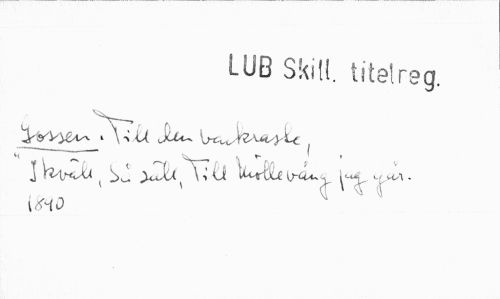 LUB Skill. titelreg.
Gossen. Till den vackraste,
"I kväll, Så säll, Till Mölleväng jag går.
1840